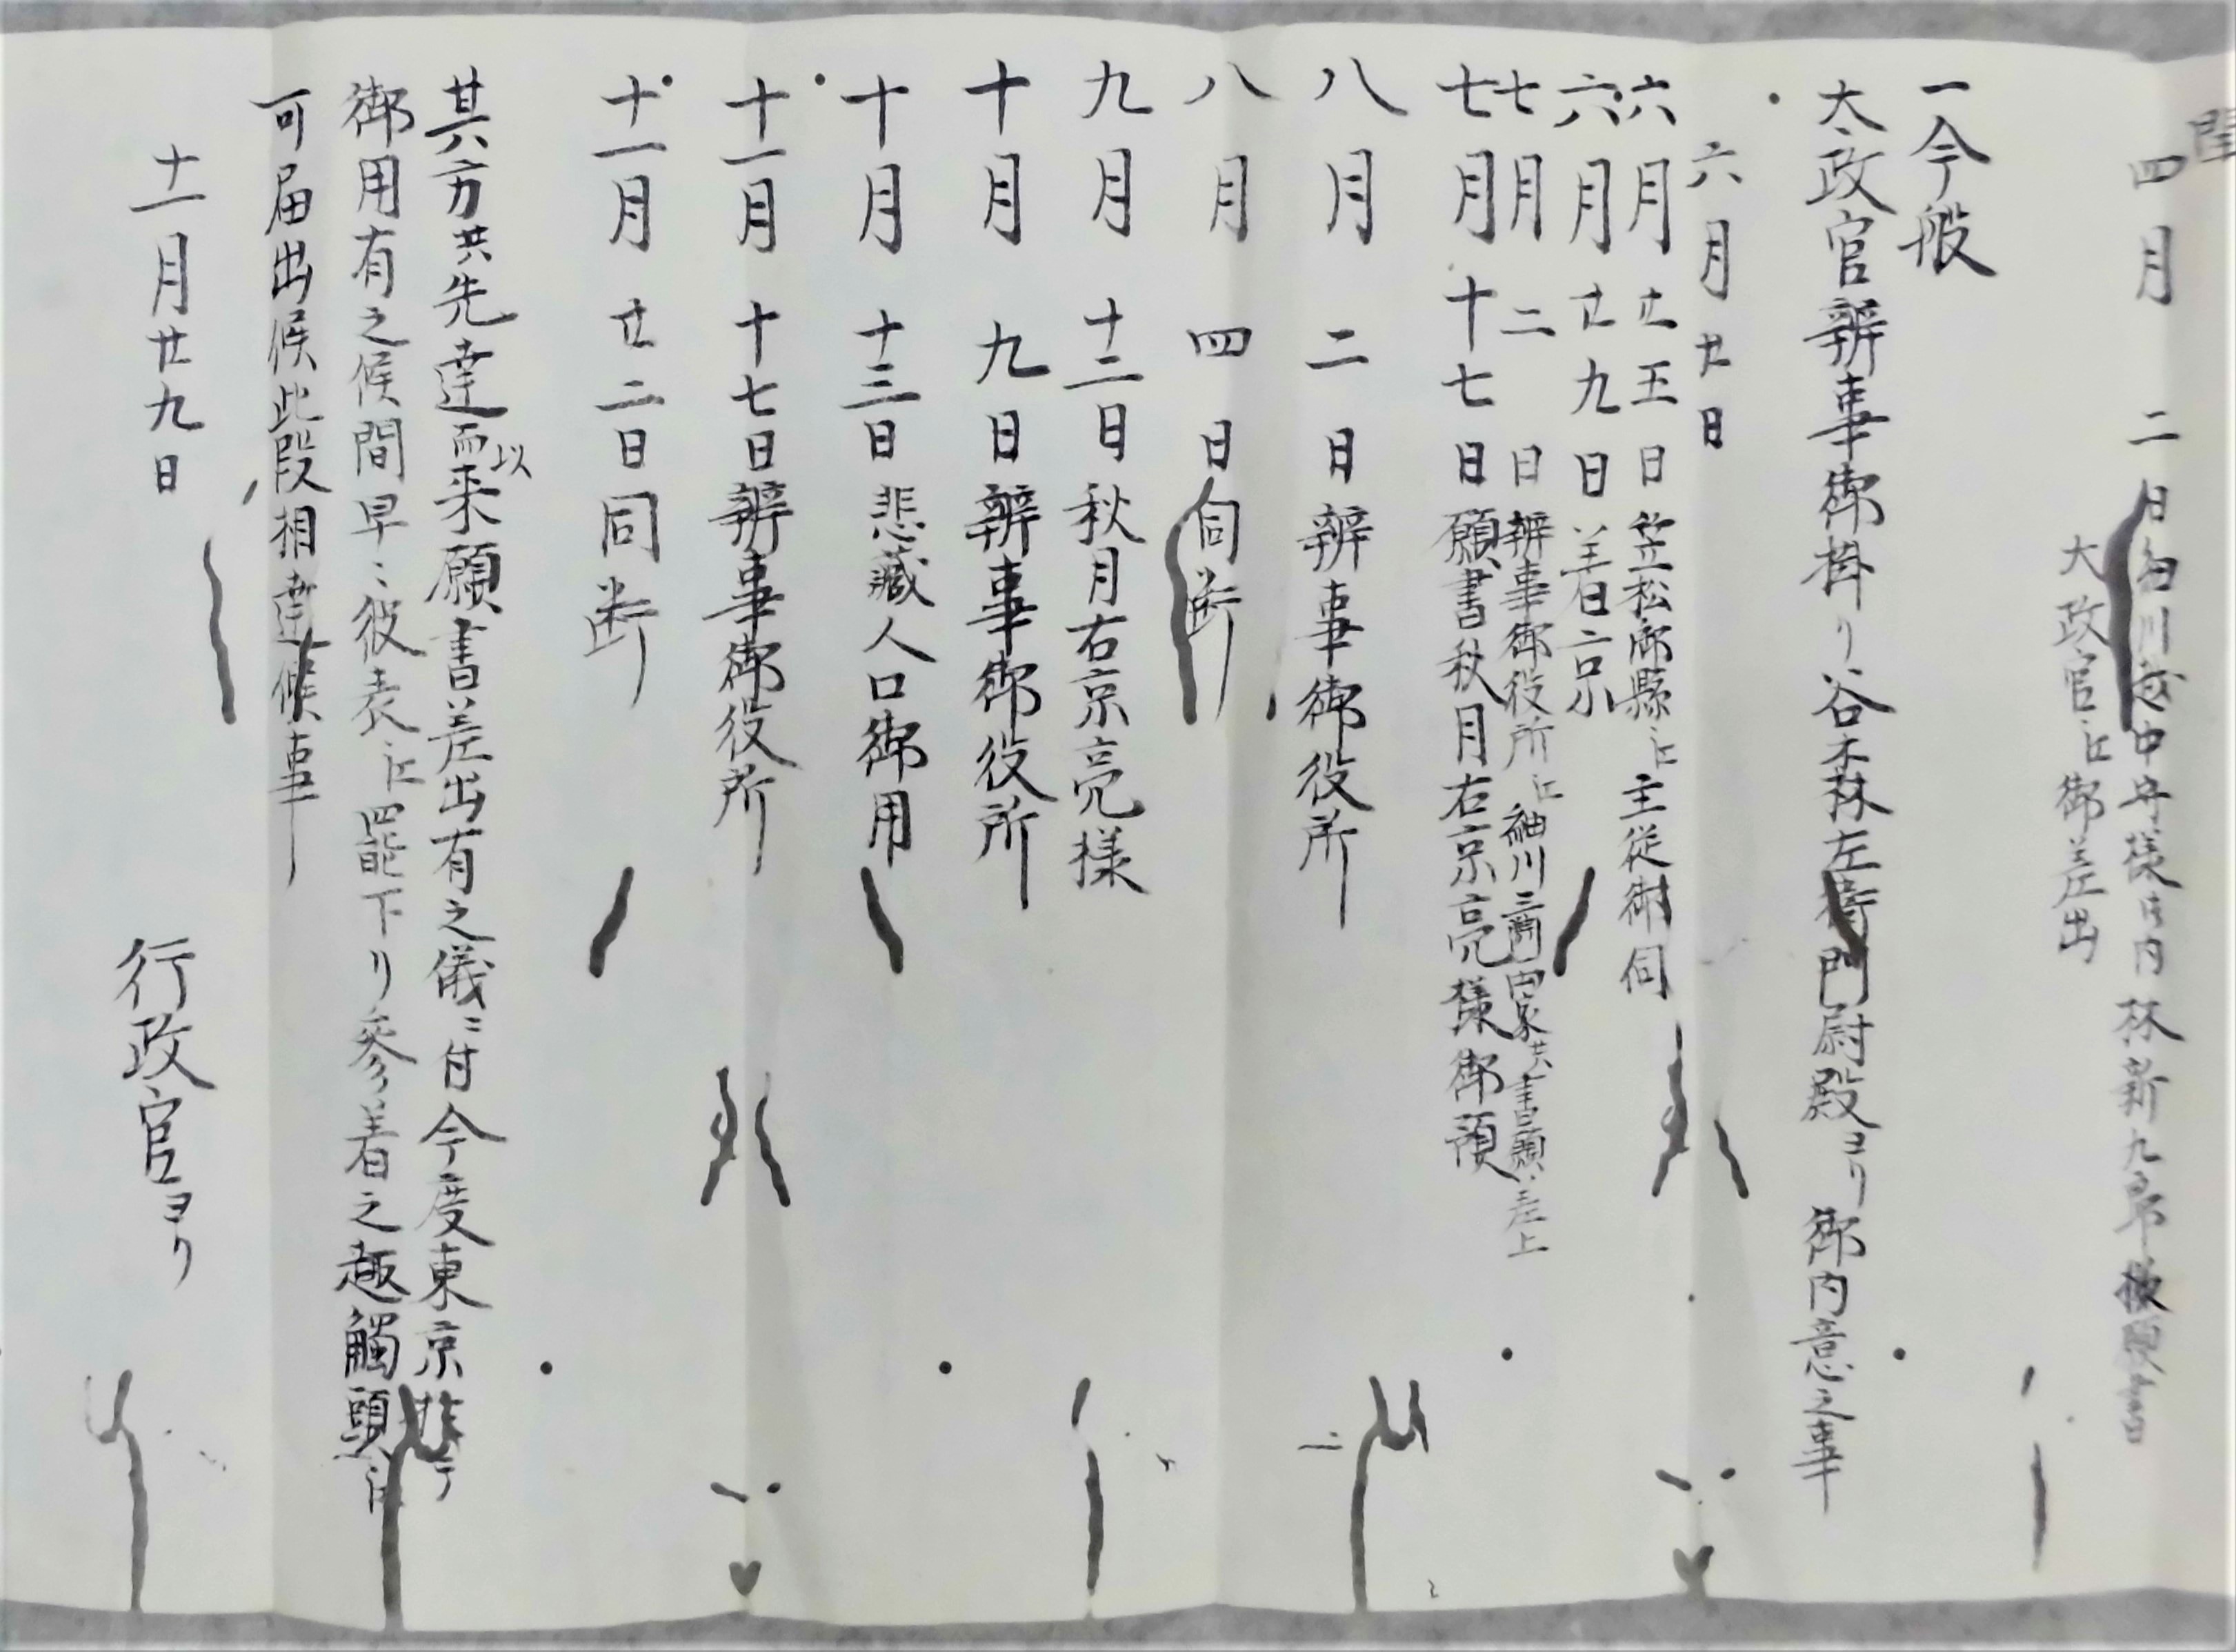 閏
四月 二日細川越中守様内林新九郎様願書
大政官江御差出
一今般
太政官辨事御掛リ谷森左衛門尉殿ヨリ御内意之事
六月廿日
六月廿五日笠松御縣江主従御伺
六月廿九日着京
七月二日辨事御役所江細川両家共書願差上
七月十七日願書秋月右京亮様御預
八月二日辨事御役所
八月四日同断
九月十二日秋月右京亮様
十月九日辨事御役所
十月十三日悲蔵人口御用
十一月十七日辨事御役所
十一月廿二日同断
其方共先達而以来願書差出有之儀ニ付今度東京
御用有之候間早ニ彼表江罷下リ参着之趣觸頭江
可届出候此段相達候事
十一月廿九日
行政官ヨリ